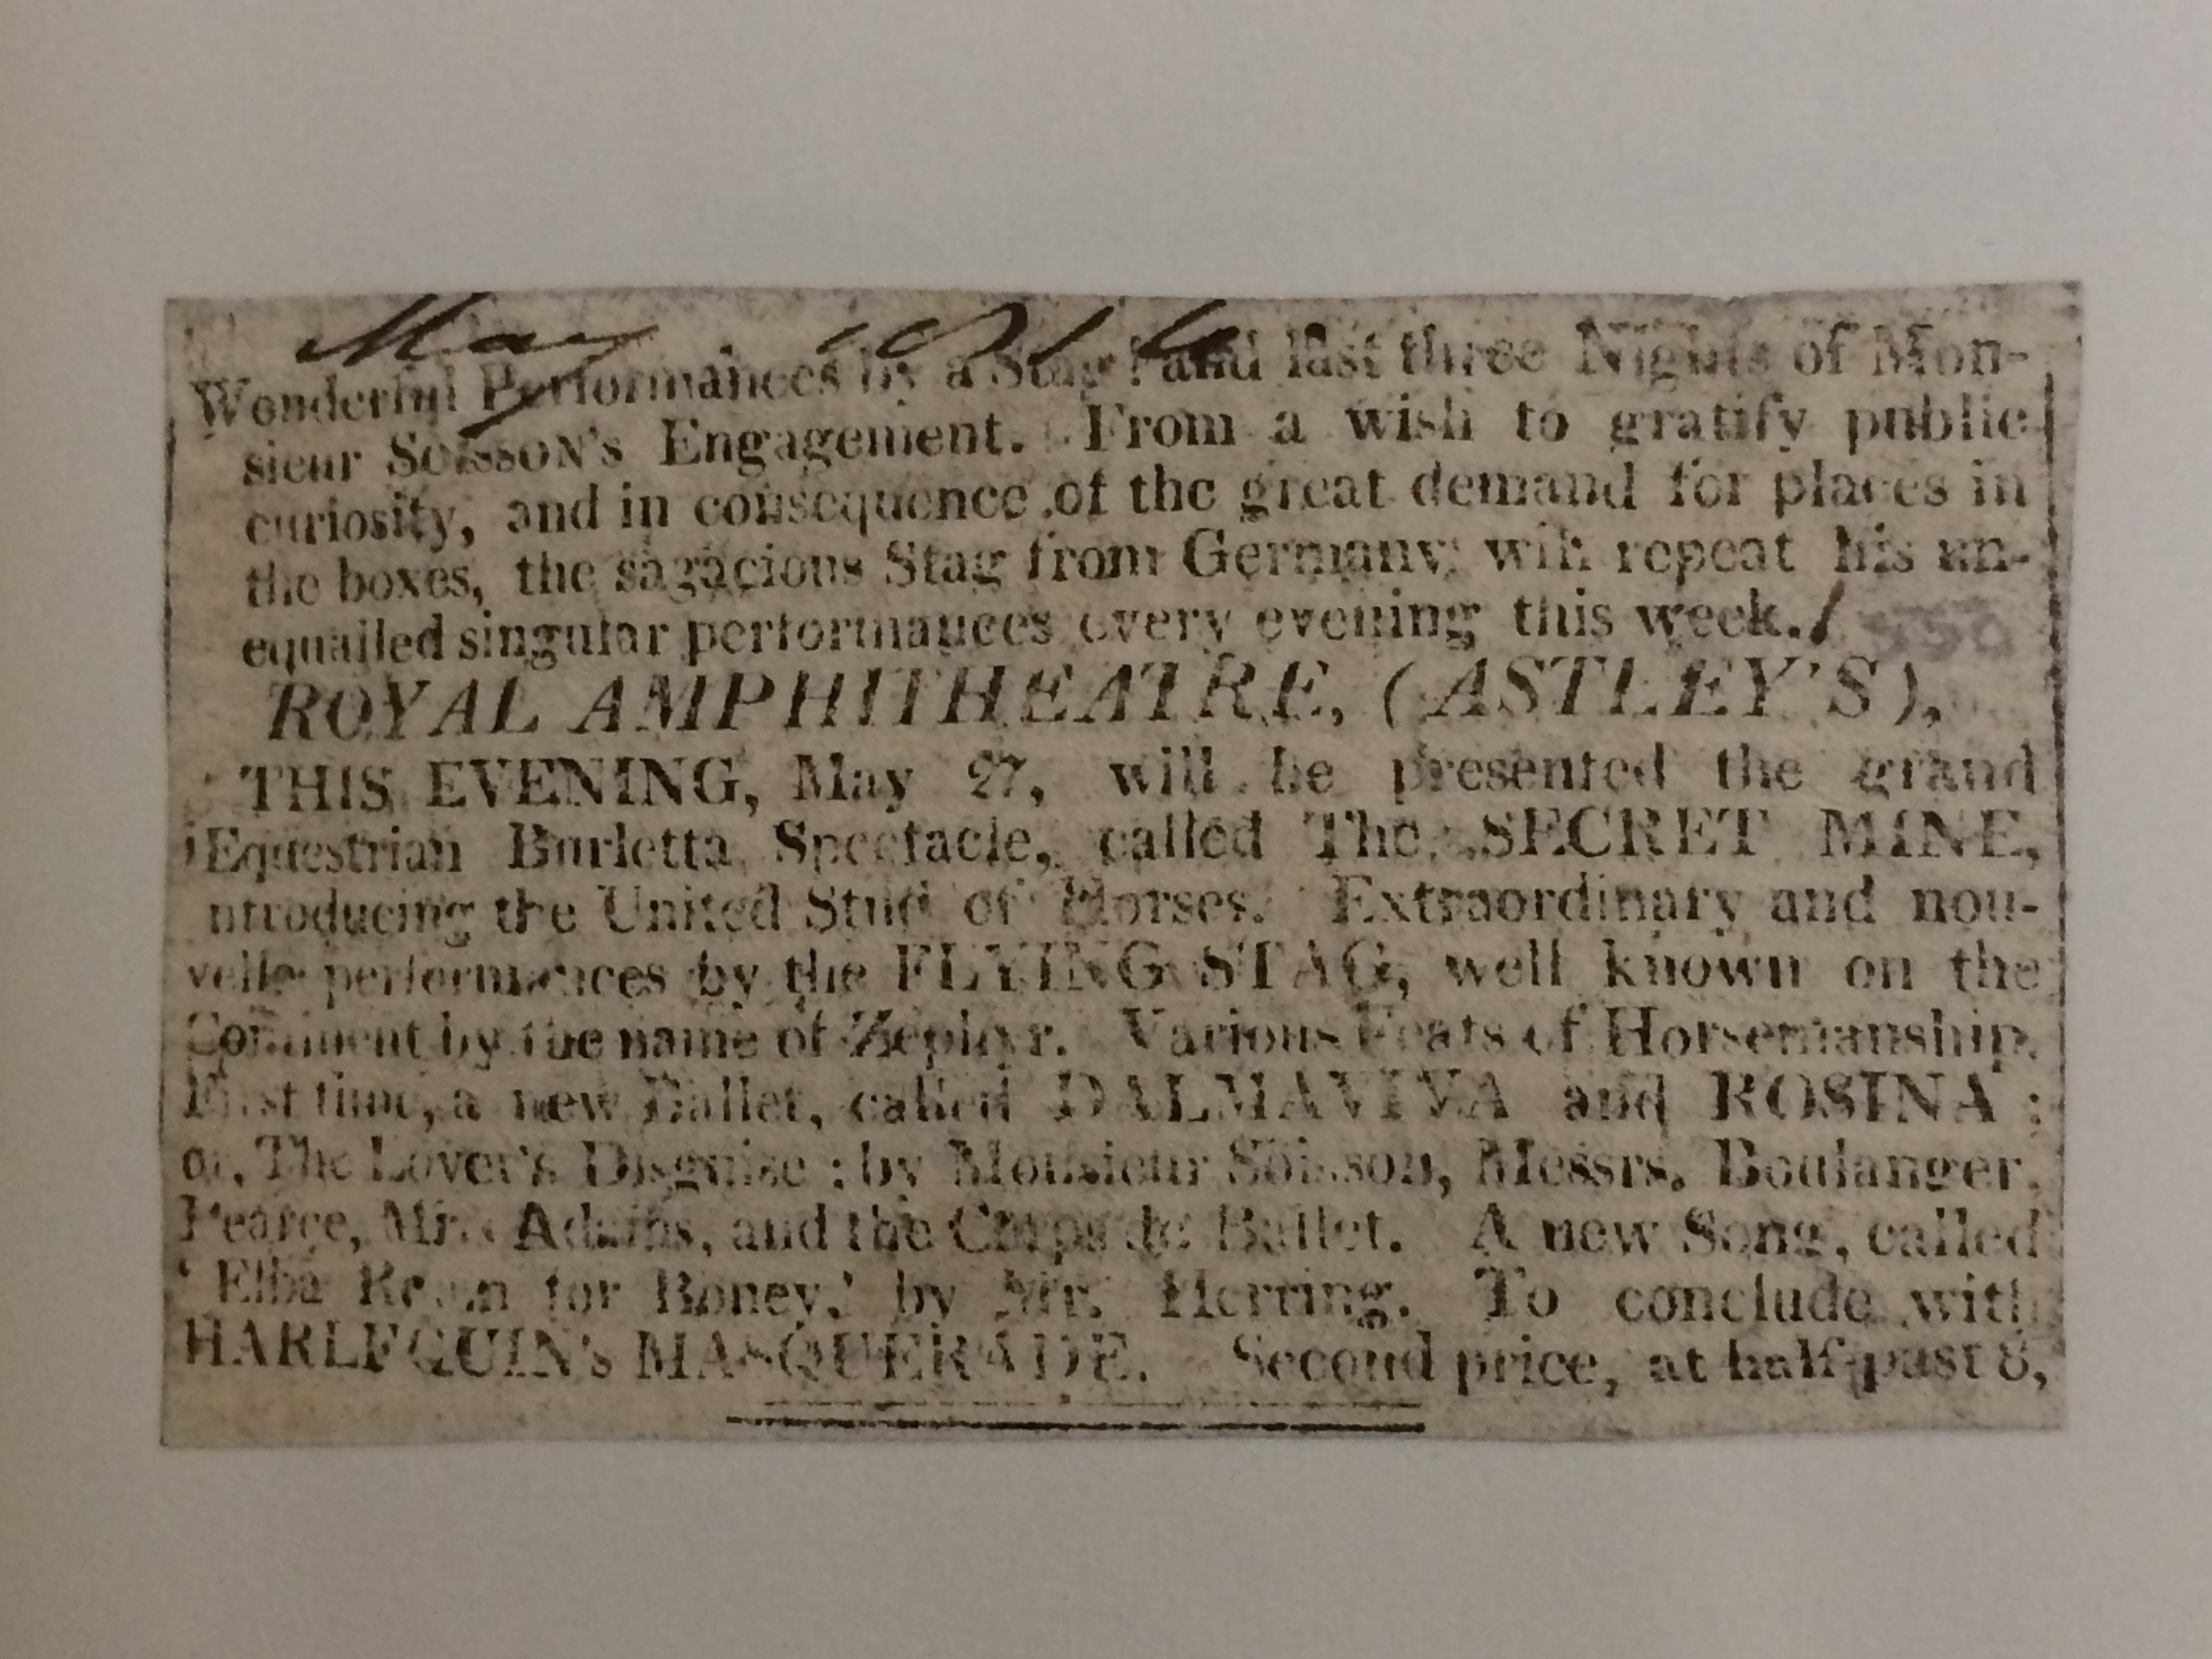 May 1814
Wonderful Performances by a Stag! and last three Nights of Mon-
sieur SOISSON'S Engagement. From a wish to gratify public
curiosity, and in consequence of the great demand for places in
the boxes, the sagacious Stag from Germany will repeat his un-
equalled singular performances every evening this week.
ROYAL AMPHITHEATRE, (ASTLEY'S),
THIS EVENING, May 27, will be presented the grand
iEquestrian Burletta Spectacle, called The SECRET MINE,
ntroducing the United Stud of Horses. Extraordinary and nou-
velle performances by the FLYING STAG, well known on the
Continent by the name of Zephyr. Various Feats of Horsemanship.
First time, a new Ballet, called DALMAVIVA and ROSINA;
or, The Lover's Disguise; by Monsieur Soisson, Messrs. Boulanger,
Pearce, Adams, and the Corps de Ballet. A new Song, called
'Elba for Boney,' by Mr. Herring. To conclude with
HARLEQUIN's MASQUERADE. Second price, at half past 8,